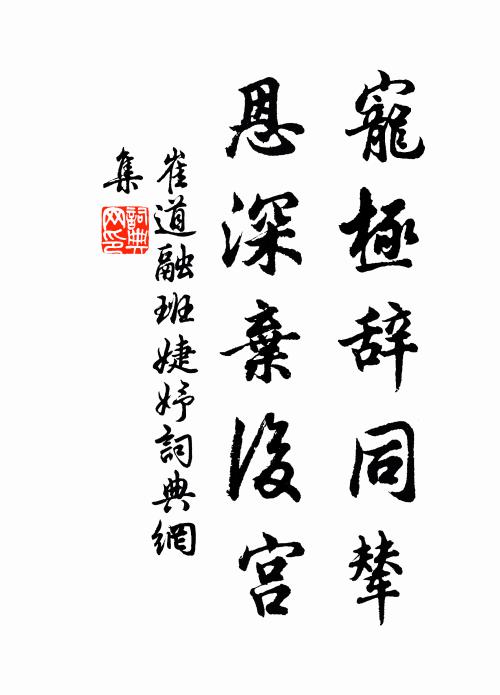 寵極辞同輦
恩深棄後宮
崔道融班婕妤詞典網
集
詞典
网印